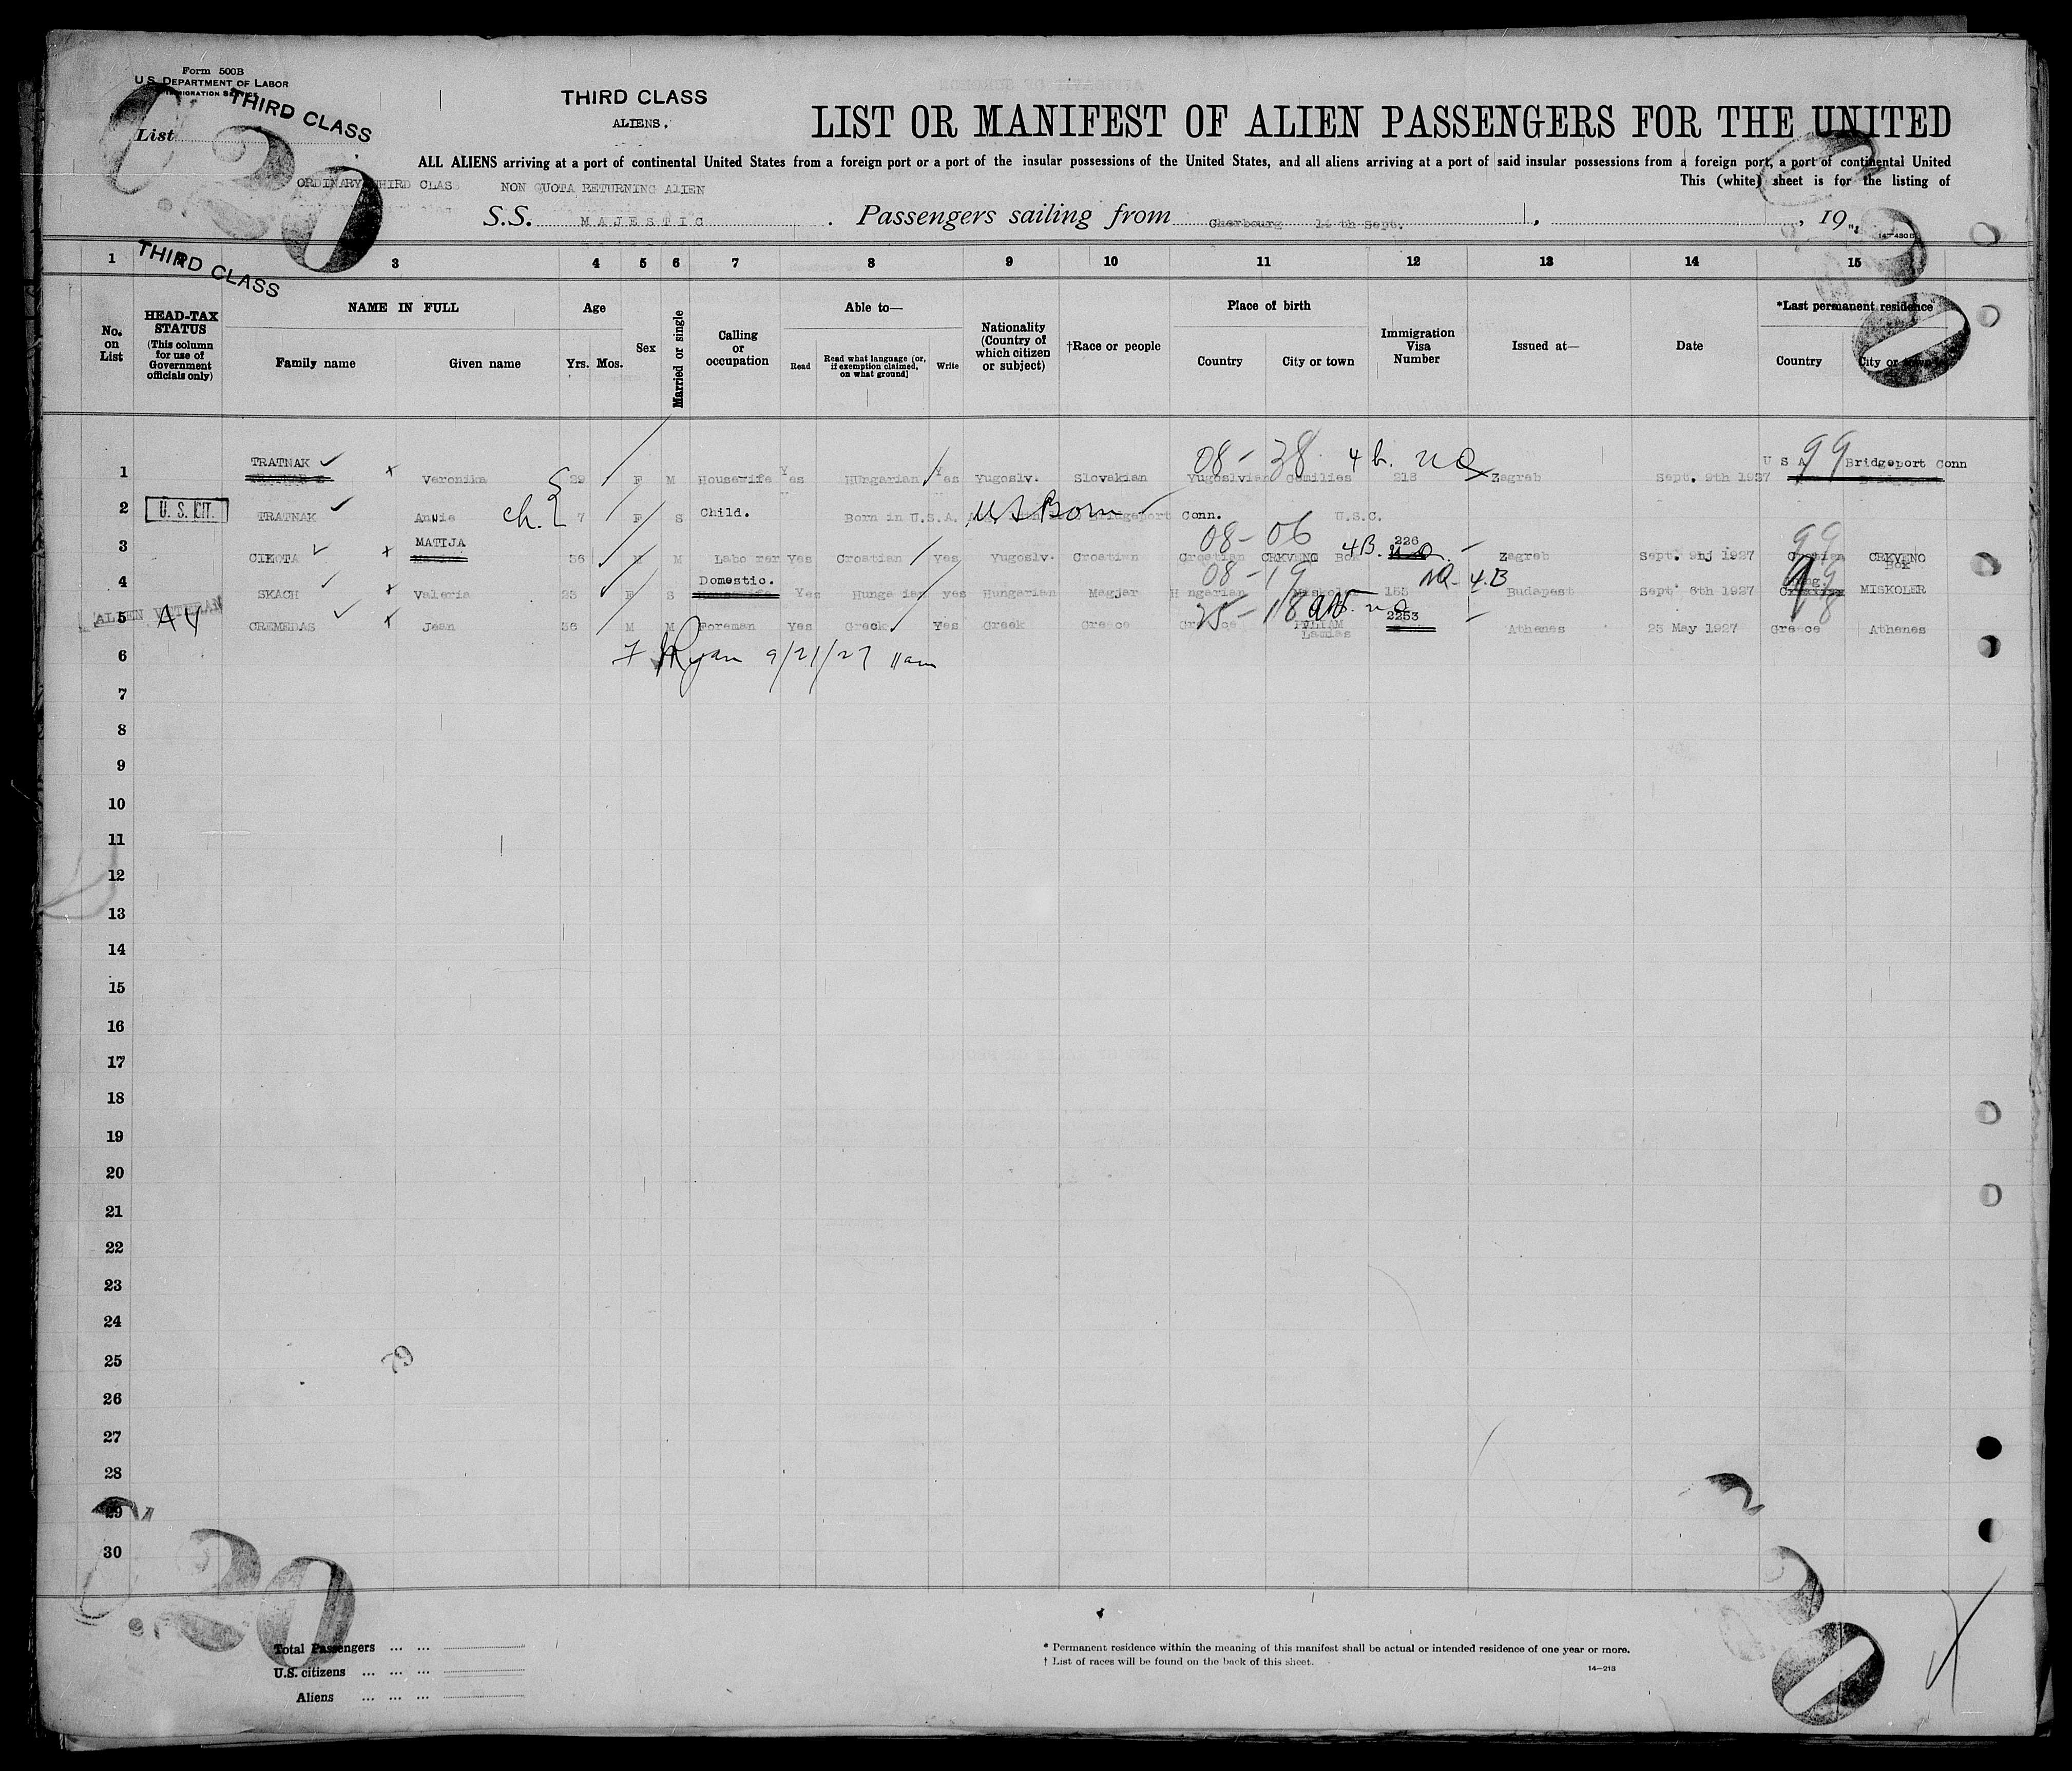 Form 500B
U.S. DEPARTMENT OF LABOR
IMMIGRATION SERVICE
THIRD CLASS
List
THIRD CLASS
ALIENS.
LIST OR MANIFEST OF ALIEN PASSENGERS FOR THE UNITED
ALL ALIENS arriving at a port of continental United States from a foreign port or a port of the insular possessions of the United States, and all aliens arriving at a port of said insular possessions from a foreign port, a port of continental United
This (white) sheet is for the listing of
ORDINARY THIRD CLASS NON QUOTA RETURNING ALIEN
S.S. MAJESTIC. Passengers sailing from Cherbourg 14 th Sept. , , 19
14-430B
1 3 4 5 6 7 8 9 10 11 12 13 14 15
THIRD CLASS
No. on List
HEAD-TAX STATUS (This column for use of Government officials only)
NAME IN FULL
Family name Given name
Age
Yrs. Mos.
Sex
Married or single
Calling or occupation
Able to—
Read Read what language (or, if exemption claimed, on what ground) Write
Nationality (Country of which citizen or subject)
†Race or people
Place of birth
Country City or town
Immigration Visa Number
Issued at—
Date
*Last permanent residence
Country City or town
08-38 4b. NQ 99
1 TRATNAK Veronika 29 F M Housewife Yes Hungarian Yes Yugoslv. Slovakian Yugoslvian 218 Zagreb Sept. 9th 1927 U S A Bridgeport Conn
2 U. S. CIT. TRATNAK Annie ch. 7 F S Child. Born in U.S.A. US Born Bridgeport Conn. U.S.C.
08-06 4B. 99
3 CIKOTA MATIJA 36 M M Laborer Yes Croatian Yes Yugoslv. Croatian Croatian CRKVENO BOK 226 Zagreb Sept. 9hj 1927 CRKVENO BOK
08-19 NQ-4B 99
4 SKACH Valeria 23 F S Domestic. Yes Hungarian yes Hungarian Magjar Hungarian Miskolc 155 Budapest Sept 6th 1927 Hung. MISKOLER
ALIEN VETERAN
25-18
5 CREMEDAS Jean 36 M M Foreman Yes Greck Yes Greek Greece Greece Lamias 2253 Athenes 23 May 1927 Greece Athenes
6 Ryan 9/21/27 11am
7
8
9
10
11
12
13
14
15
16
17
18
19
20
21
22
23
24
25
79
26
27
28
29
30
Total Passengers ... ...
U.S. citizens ... ... ...
Aliens ... ... ...
* Permanent residence within the meaning of this manifest shall be actual or intended residence of one year or more.
† List of races will be found on the back of this sheet.
14-213